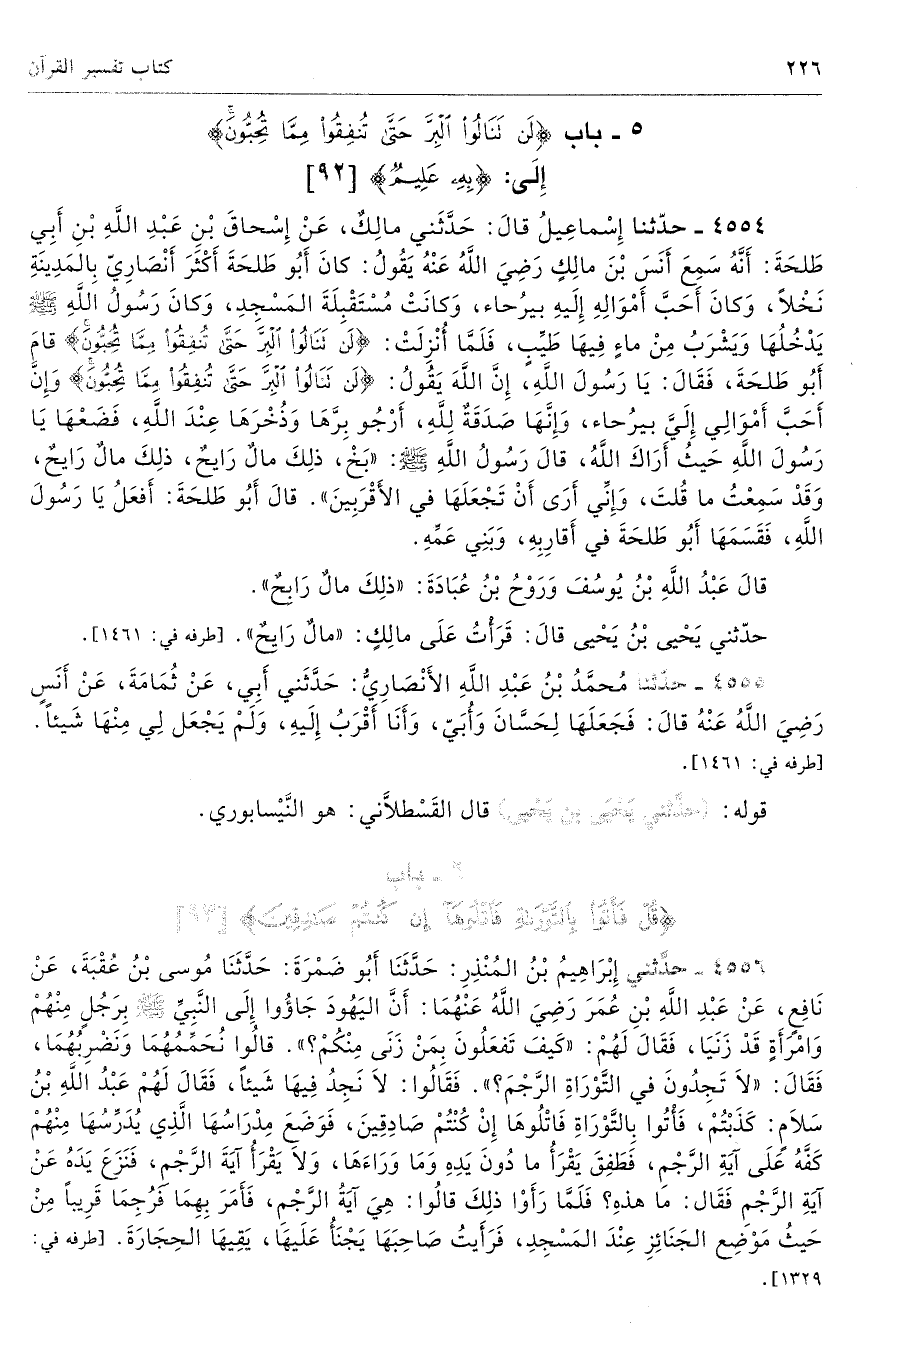 ٢٢٦
كتاب تفسير القرآن
٥ ـ باب ﴿لَن نَنَالُواْ ٱلْبِرَّ حَتَّىٰ تُنفِقُواْ مِمَّا تُحِبُّونَۚ﴾
إِلَى: ﴿بِهِۦ عَلِيمٌ﴾ [٩٢]
٤٥٥٤ ـ حدّثنا إِسْماعِيلُ قالَ: حَدَّثَني مالِكٌ، عَنْ إِسْحاقَ بْنِ عَبْدِ اللَّهِ بْنِ أَبي
طَلحَةَ: أَنَّهُ سَمِعَ أَنَسَ بْنَ مالِكٍ رَضِيَ اللَّهُ عَنْهُ يَقُولُ: كانَ أَبُو طَلحَةَ أَكْثَرَ أَنْصَارِيّ بِالمَدِينَةِ
نَخْلاً، وَكانَ أَحَبَّ أَمْوَالِهِ إِلَيهِ بيرُحاء، وَكانَتْ مُسْتَقْبِلَةَ المَسْجِدِ، وَكانَ رَسُولُ اللَّهِ ﷺ
يَدْخُلُهَا وَيَشْرَبُ مِنْ ماءٍ فِيهَا طَيِّبٍ، فَلَمَّا أُنْزِلَتْ: ﴿لَن نَنَالُواْ ٱلْبِرَّ حَتَّىٰ تُنفِقُواْ مِمَّا تُحِبُّونَۚ﴾ قامَ
أَبُو طَلحَةَ، فَقَالَ: يَا رَسُولَ اللَّهِ، إِنَّ اللَّهَ يَقُولُ: ﴿لَن نَنَالُواْ ٱلْبِرَّ حَتَّىٰ تُنفِقُواْ مِمَّا تُحِبُّونَۚ﴾ وَإِنَّ
أَحَبَّ أَمْوَالِي إِلَيَّ بيرُحاء، وَإِنَّهَا صَدَقَةٌ لِلَّهِ، أَرْجُو بِرَّهَا وَذُخْرَهَا عِنْدَ اللَّهِ، فَضَعْهَا يَا
رَسُولَ اللَّهِ حَيثُ أَرَاكَ اللَّهُ، قالَ رَسُولُ اللَّهِ ﷺ: «بَخْ، ذلِكَ مالٌ رَايِحٌ، ذلِكَ مالٌ رَايِحٌ،
وَقَدْ سَمِعْتُ ما قُلتَ، وَإِنِّي أَرَى أَنْ تَجْعَلَهَا في الأَقْرَبِينَ». قالَ أَبُو طَلحَةَ: أَفعَلُ يَا رَسُولَ
اللَّهِ، فَقَسَمَهَا أَبُو طَلحَةَ في أَقارِبِهِ، وَبَنِي عَمِّهِ.
قالَ عَبْدُ اللَّهِ بْنُ يُوسُفَ وَرَوْحُ بْنُ عُبَادَةَ: «ذلِكَ مالٌ رَابِحٌ».
حدّثني يَحْيى بْنُ يَحْيى قالَ: قَرَأْتُ عَلَى مالِكٍ: «مالٌ رَايِحٌ». [طرفه في: ١٤٦١].
٤٥٥٥ ـ حدّثنا مُحمَّدُ بْنُ عَبْدِ اللَّهِ الأَنْصَارِيُّ: حَدَّثَني أَبي، عَنْ ثُمَامَةَ، عَنْ أَنَسٍ
رَضِيَ اللَّهُ عَنْهُ قالَ: فَجَعَلَهَا لِحَسَّانَ وَأُبَيّ، وَأَنَا أَقْرَبُ إِلَيهِ، وَلَمْ يَجْعَل لِي مِنْهَا شَيئاً.
[طرفه في: ١٤٦١].
قوله: (حدَّثني يَحْيَى بن يَحْيى) قال القَسْطلاَّني: هو النَّيْسابوري.
٦ ـ باب
﴿قُلْ فَأْتُواْ بِالتَّوْرَىٰةِ فَاتْلُوهَآ إِن كُنتُمْ صَٰدِقِينَ﴾ [٩٣]
٤٥٥٦ ـ حدَّثني إِبْرَاهِيمُ بْنُ المُنْذِرِ: حَدَّثَنَا أَبُو ضَمْرَةَ: حَدَّثَنَا مُوسى بْنُ عُقْبَةَ، عَنْ
نَافِعٍ، عَنْ عَبْدِ اللَّهِ بْنِ عُمَرَ رَضِيَ اللَّهُ عَنْهُمَا: أَنَّ اليَهُودَ جَاؤُوا إِلَى النَّبِيِّ ﷺ بِرَجُلٍ مِنْهُمْ
وَامْرَأَةٍ قَدْ زَنَيَا، فَقَالَ لَهُمْ: «كَيفَ تَفعَلُونَ بِمَنْ زَنَى مِنْكُمْ؟». قالُوا نُحَمِّمُهُمَا وَنَضْرِبُهُمَا،
فَقَالَ: «لاَ تَجِدُونَ في التَّوْرَاةِ الرَّجْمَ؟». فَقَالُوا: لاَ نَجِدُ فِيهَا شَيئاً، فَقَالَ لَهُمْ عَبْدُ اللَّهِ بْنُ
سَلاَمٍ: كَذَبْتُمْ، فَأْتُوا بِالتَّوْرَاةِ فَاتْلُوهَا إِنْ كُنْتُمْ صَادِقِينَ، فَوَضَعَ مِدْرَاسُهَا الَّذِي يُدَرِّسُهَا مِنْهُمْ
كَفَّهُ عَلَى آيَةِ الرَّجْمِ، فَطَفِقَ يَقْرَأُ ما دُونَ يَدِهِ وَمَا وَرَاءَهَا، وَلاَ يَقْرَأُ آيَةَ الرَّجْمِ، فَنَزَعَ يَدَهُ عَنْ
آيَةِ الرَّجْمِ فَقَالَ: مَا هذهِ؟ فَلَمَّا رَأَوْا ذلِكَ قالُوا: هِيَ آيَةُ الرَّجْمِ، فَأَمَرَ بِهِمَا فَرُجِمَا قَرِيباً مِنْ
حَيثُ مَوْضِعِ الجَنَائِزِ عِنْدَ المَسْجِدِ، فَرَأَيتُ صَاحِبَهَا يَجْنَأُ عَلَيهَا، يَقِيهَا الحِجَارَةَ. [طرفه في:
١٣٢٩].